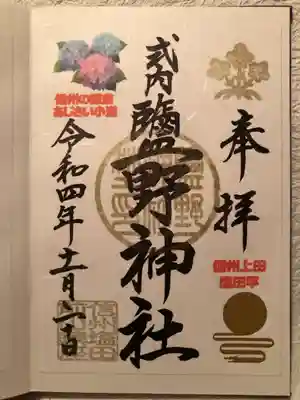 奉拝
信州上田
塩田平
式内鹽野神社
信州の鎌倉
あじさい小道
令和四年十一月